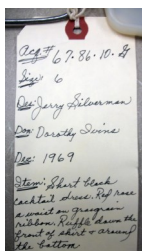 Acq# 67.86.10. G
Size: 6
Des: Jerry Silverman
Don: Dorothy Ivins
Dec: 1969
Item: Short black
cocktail dress. Red rose
@ waist on grosgrain
ribbon. Ruffle down the
front of skirt & around
the bottom